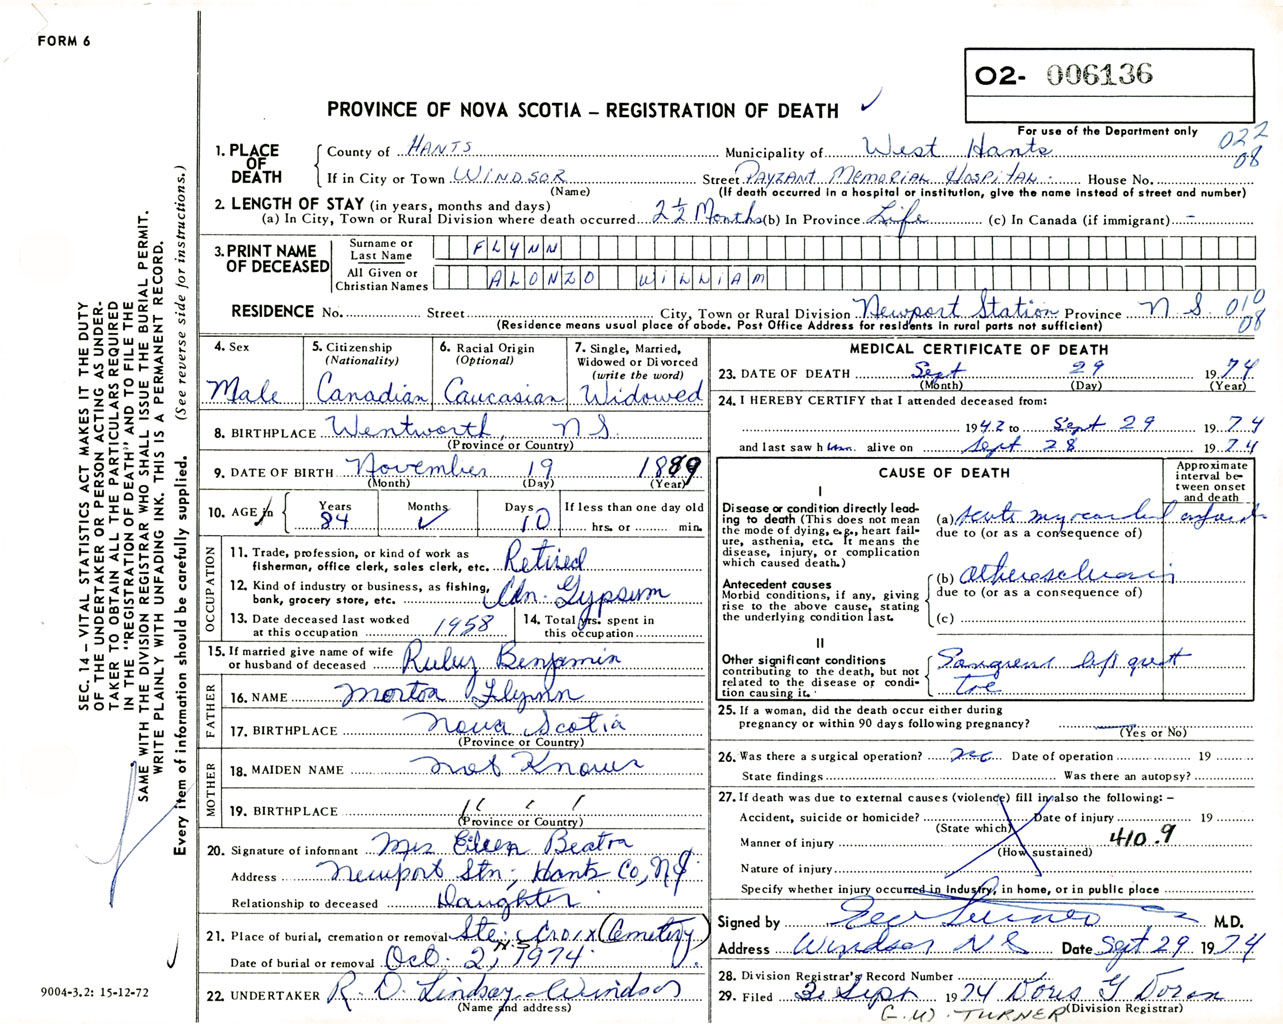 FORM 6
O2- 006136
PROVINCE OF NOVA SCOTIA – REGISTRATION OF DEATH ✓
For use of the Department only
022
08
1. PLACE OF DEATH
County of HANTS Municipality of West Hants
If in City or Town WINDSOR Street PAYZANT MEMORIAL HOSPITAL House No.
(Name) (If death occurred in a hospital or institution, give the name instead of street and number)
2. LENGTH OF STAY (in years, months and days)
(a) In City, Town or Rural Division where death occurred 2½ Months (b) In Province Life (c) In Canada (if immigrant) -
3. PRINT NAME OF DECEASED
Surname or Last Name FLYNN
All Given or Christian Names ALONZO WILLIAM
RESIDENCE No. Street City, Town or Rural Division Newport Station Province N S 010
08
(Residence means usual place of abode. Post Office Address for residents in rural parts not sufficient)
4. Sex
Male
5. Citizenship
(Nationality)
Canadian
6. Racial Origin
(Optional)
Caucasian
7. Single, Married, Widowed or Divorced
(write the word)
Widowed
8. BIRTHPLACE Wentworth, N S
(Province or Country)
9. DATE OF BIRTH November 19 1889
(Month) (Day) (Year)
10. AGE in
Years 84 Months ✓ Days 10
If less than one day old
hrs. or min.
OCCUPATION
11. Trade, profession, or kind of work as
fisherman, office clerk, sales clerk, etc. Retired
12. Kind of industry or business, as fishing,
bank, grocery store, etc. Cdn. Gypsum
13. Date deceased last worked
at this occupation 1958
14. Total yrs. spent in
this occupation
15. If married give name of wife
or husband of deceased Ruby Benjamin
FATHER
16. NAME Morton Flynn
17. BIRTHPLACE Nova Scotia
(Province or Country)
MOTHER
18. MAIDEN NAME Not Known
19. BIRTHPLACE " " "
(Province or Country)
20. Signature of informant Mrs Eileen
Address Newport Stn., Hants Co, NS
Relationship to deceased Daughter
21. Place of burial, cremation or removal Ste. Croix (Cemetery)
N.S.
Date of burial or removal Oct. 2, 1974.
22. UNDERTAKER R. D. Lindsay - Windsor
(Name and address)
MEDICAL CERTIFICATE OF DEATH
23. DATE OF DEATH Sept 29 1974
(Month) (Day) (Year)
24. I HEREBY CERTIFY that I attended deceased from:
1942 to Sept 29 1974
and last saw him alive on Sept 28 1974
CAUSE OF DEATH
Approximate interval between onset and death
I
Disease or condition directly leading
to death (This does not mean
the mode of dying, e.g., heart failure,
asthenia, etc. It means the
disease, injury, or complication
which caused death.)
(a) Acute myocardial infarct
due to (or as a consequence of)
Antecedent causes
Morbid conditions, if any, giving
rise to the above cause, stating
the underlying condition last.
(b)
due to (or as a consequence of)
(c)
II
Other significant conditions
contributing to the death, but not
related to the disease or condition
causing it.
Gangrene left great
toe
25. If a woman, did the death occur either during
pregnancy or within 90 days following pregnancy? —
(Yes or No)
26. Was there a surgical operation? no Date of operation 19
State findings Was there an autopsy?
27. If death was due to external causes (violence) fill in also the following: –
Accident, suicide or homicide? Date of injury 19
(State which)
Manner of injury 410.9
(How sustained)
Nature of injury
Specify whether injury occurred in Industry, in home, or in public place
Signed by M.D.
Address Windsor N S Date Sept 29 1974
28. Division Registrar's Record Number
29. Filed Sept 1974 Doris G Doran
(Division Registrar)
G.W. TURNER
SEC. 14 – VITAL STATISTICS ACT MAKES IT THE DUTY
OF THE UNDERTAKER OR PERSON ACTING AS UNDERTAKER
TO OBTAIN ALL THE PARTICULARS REQUIRED
IN THE "REGISTRATION OF DEATH" AND TO FILE THE
SAME WITH THE DIVISION REGISTRAR WHO SHALL ISSUE THE BURIAL PERMIT.
WRITE PLAINLY WITH UNFADING INK. THIS IS A PERMANENT RECORD.
Every item of information should be carefully supplied. (See reverse side for instructions.)
9004-3.2: 15-12-72